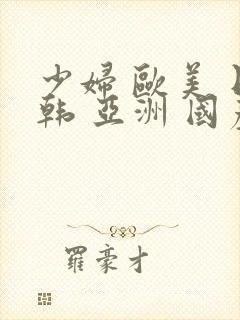 少婦歐美
韩亞洲國
羅豪才